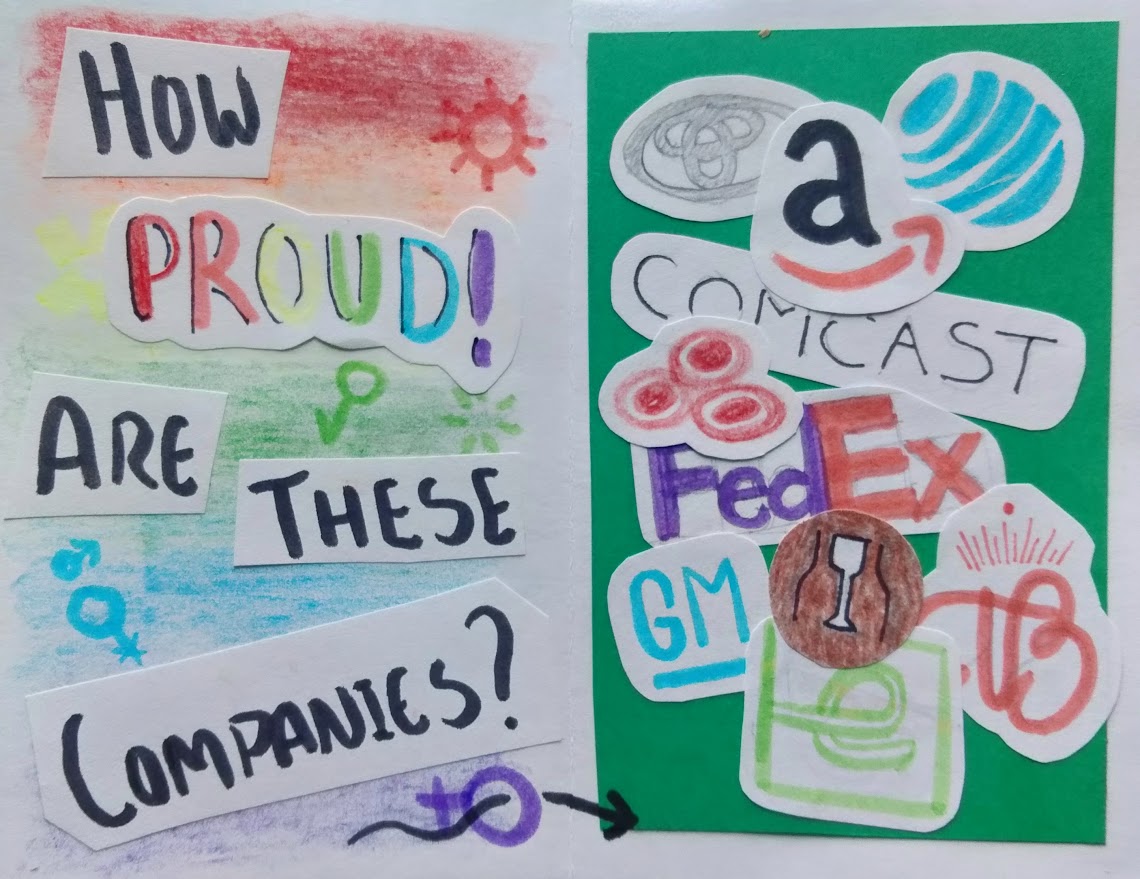 HOW
PROUD!
ARE
THESE
COMPANIES?
a
COMCAST
FedEx
GM
e